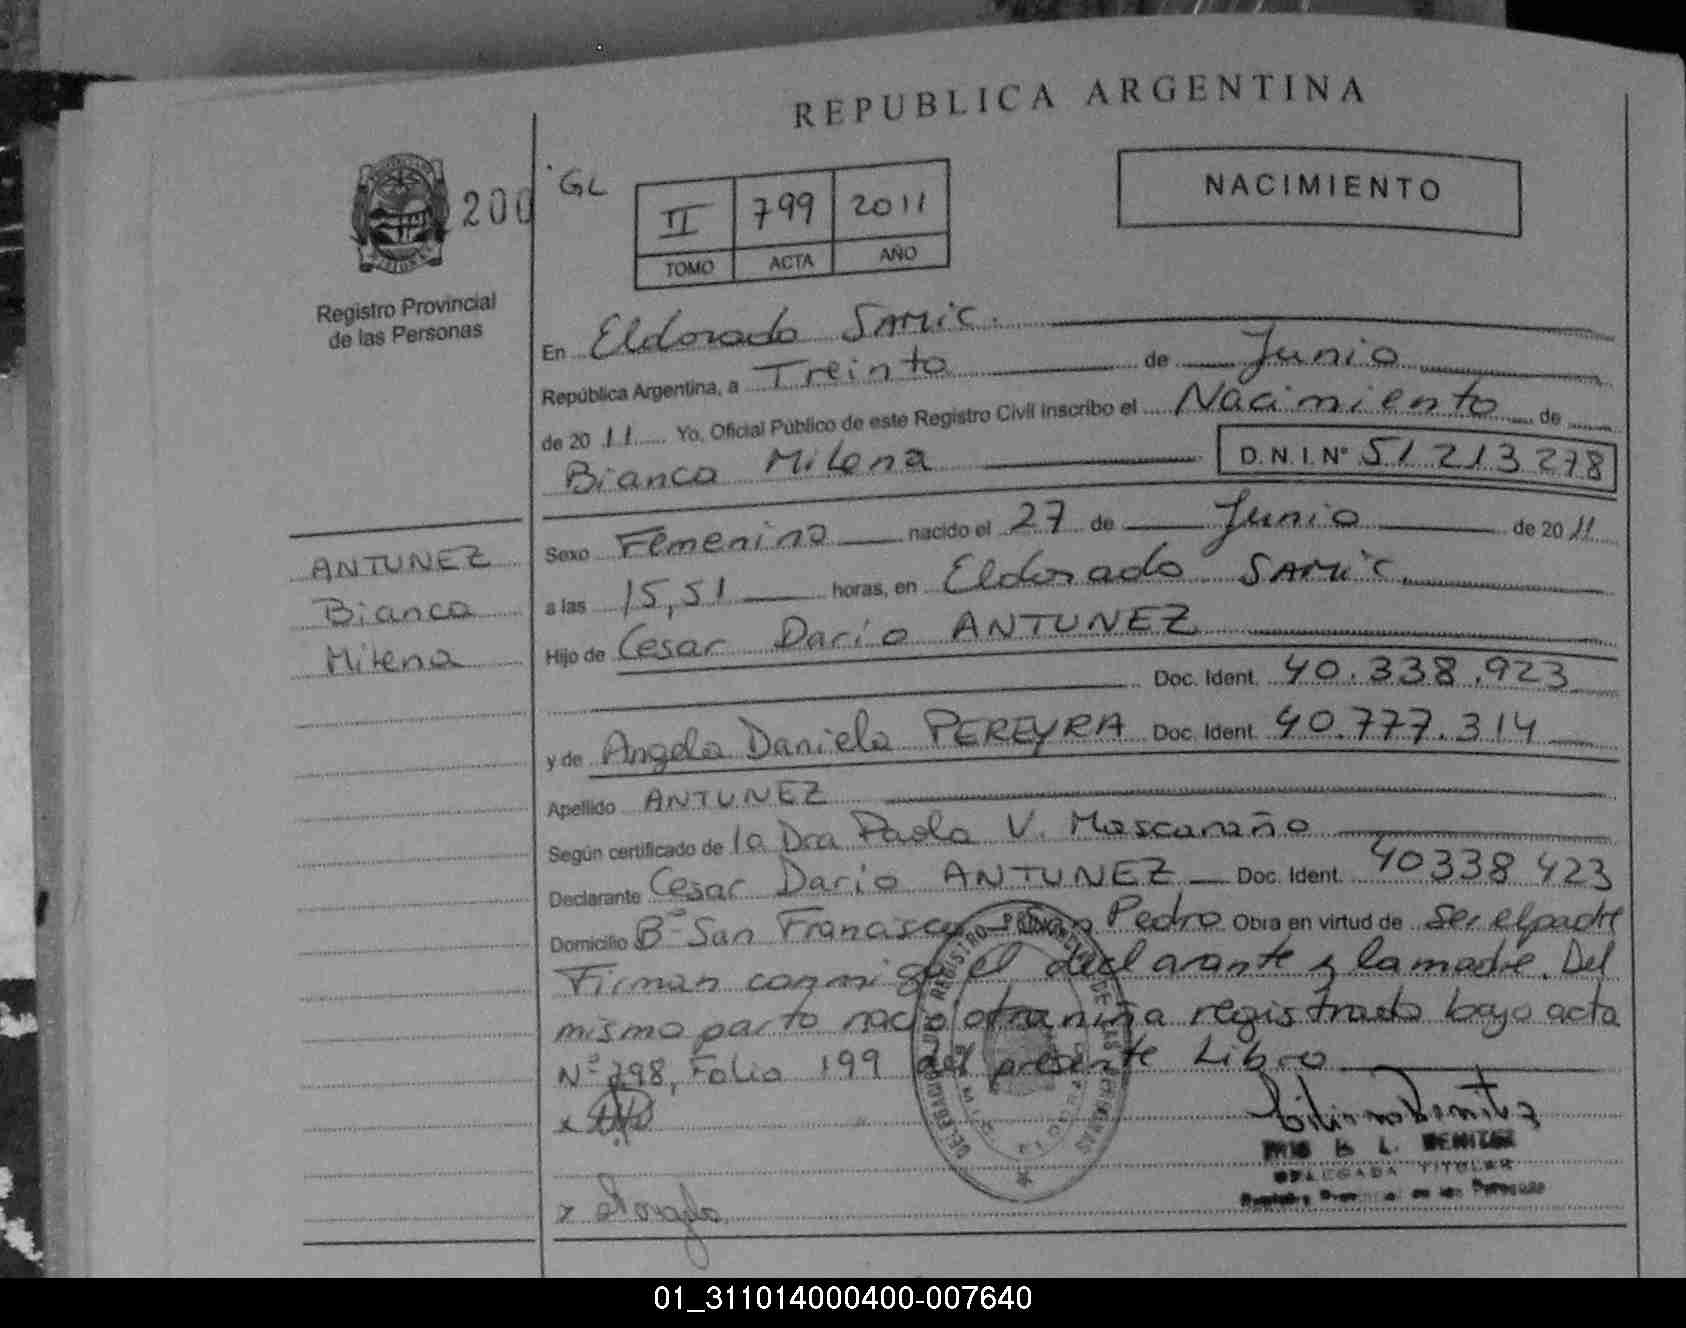 REPUBLICA ARGENTINA
NACIMIENTO
200
GL
II 799 2011
TOMO ACTA AÑO
Registro Provincial
de las Personas
En Eldorado SAMIC.
República Argentina, a Treinta de Junio
de 2011 Yo, Oficial Público de este Registro Civil inscribo el Nacimiento de
Bianca Milena D.N.I. N° 51213278
ANTUNEZ
Bianca
Milena
Sexo Femenino nacido el 27 de Junio de 2011
a las 15,51 horas, en Eldorado SAMIC
Hijo de Cesar Darío ANTUNEZ
Doc. Ident. 40.338.923
y de Angela Daniela PEREYRA Doc. Ident. 40.777.314
Apellido ANTUNEZ
Según certificado de la Dra Paola V. Mascaraño
Declarante Cesar Dario ANTUNEZ Doc. Ident. 40338423
Domicilio B° San Francisco San Pedro Obra en virtud de Ser el padre
Firman conmigo el declarante y la madre. Del
mismo parto nació otra niña registrada bajo acta
N° 798, Folio 199 del presente Libro
x
B. L. BENITEZ
DELEGADA TITULAR
Registro Provincial de las Personas
x Angela
REGISTRO PROVINCIAL DE LAS PERSONAS
01_311014000400-007640